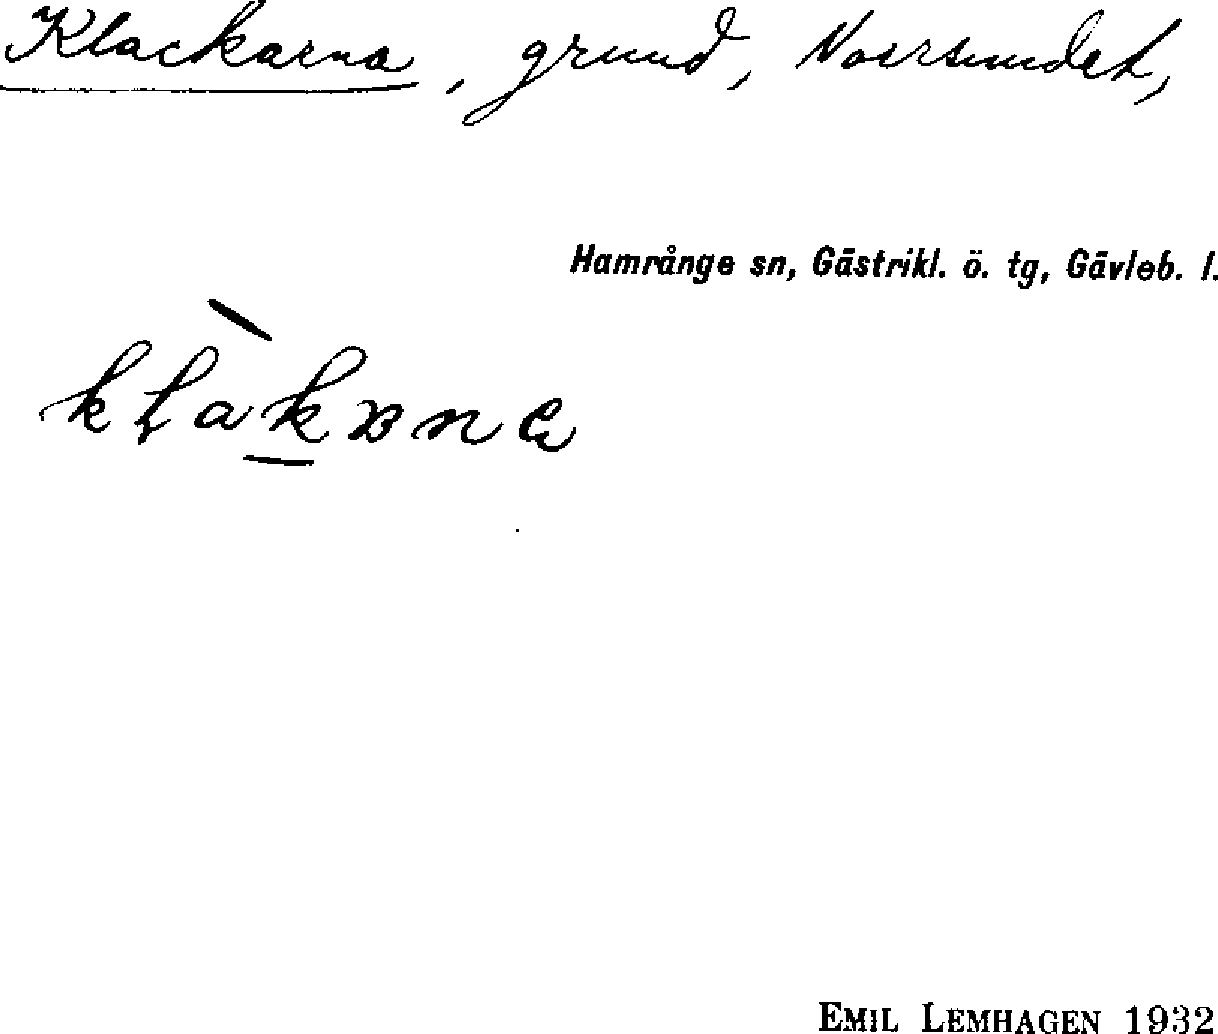 Klackarna, grund, Norrsundet,
Hamrånge sn, Gästrikl. ö. tg, Gävleb. l.
EMIL LEMHAGEN 1932